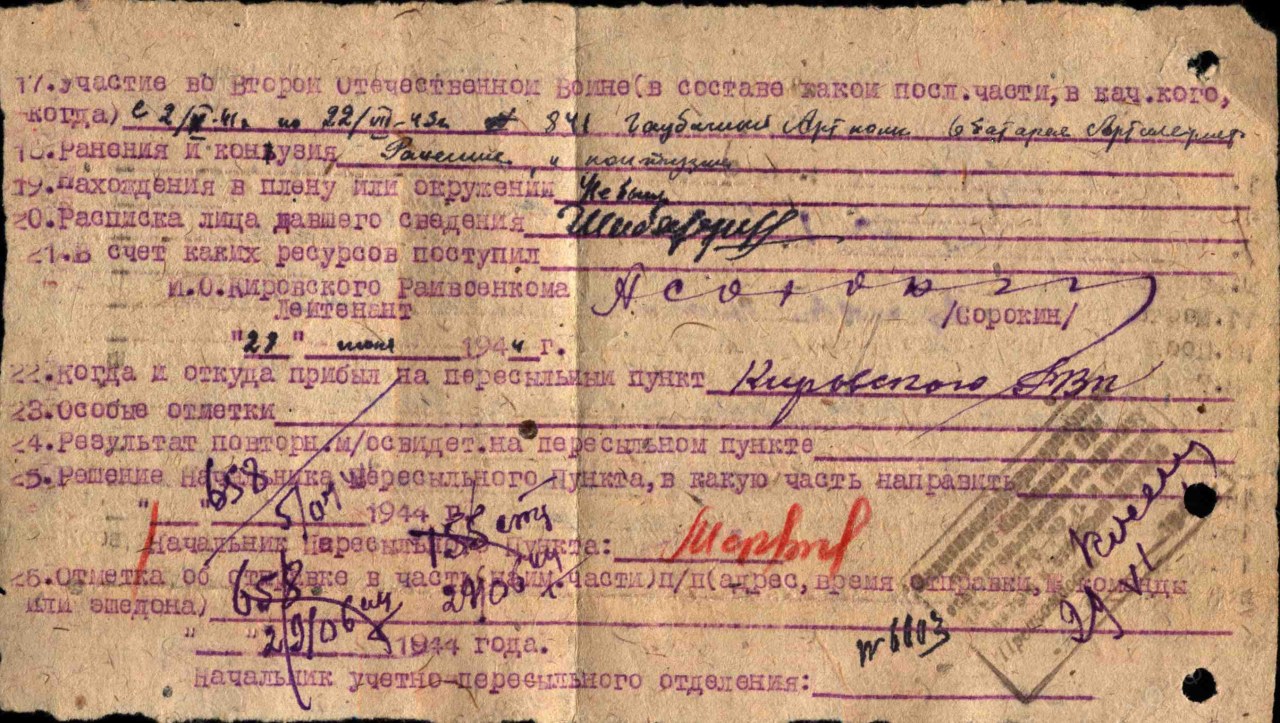 17.Участие во Второй Отечественной Войне(в составе какой посл.части,в кач.кого,
когда) с 2/ -41г. по 22/VII-43г. 841 гаубичный Арт полк батарея Артилерист
18.Ранения и контузия Ранение и контузия
19.Нахождения в плену или окружении Не был
20.Расписка лица давшего сведения
21.В счет каких ресурсов поступил
И.О.Кировского Райвоенкома
Лейтенант /Сорокин/
"28" июня 1944 г.
22.Когда и откуда прибыл на пересыльный пункт Кировского РВК
23.Особые отметки
24.Результат повторн.м/освидет.на пересыльном пункте
25.Решение Начальника Пересыльного Пункта,в какую часть направить
658
5/07
" " 1944 г.
155
Начальник Пересыльного Пункта:
29/06
26.Отметка об отправке в часть(наим.части)п/п(адрес,время отправки,№ команды
или эшелона) 658
29/06
" " 1944 года.
29 VI
Начальник учетно-пересыльного отделения: